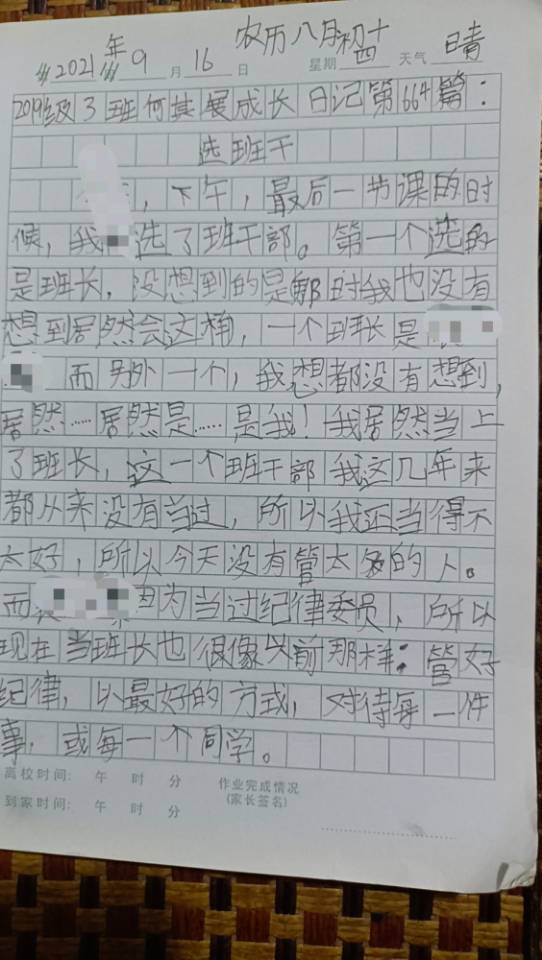 2021年9月16日 农历八月初十四 星期 天气 晴
2019级3班何其展成长日记第664篇:
选班干
,下午,最后一节课的时
候,我 选了班干部。第一个选的
是班长,没想到的是那时我也没有
想到居然会这样,一个班长是
而另外一个,我想都没有想到,
居然……居然是……是我!我居然当上
了班长,这一个班干部我这几年来
都从来没有当过,所以我还当得不
太好,所以今天没有管太多的人。
而 因为当过纪律委员,所以
现在当班长也很像以前那样:管好
纪律,以最好的方式,对待每一件
事,或每一个同学。
离校时间: 午 时 分 作业完成情况
到家时间: 午 时 分 (家长签名)